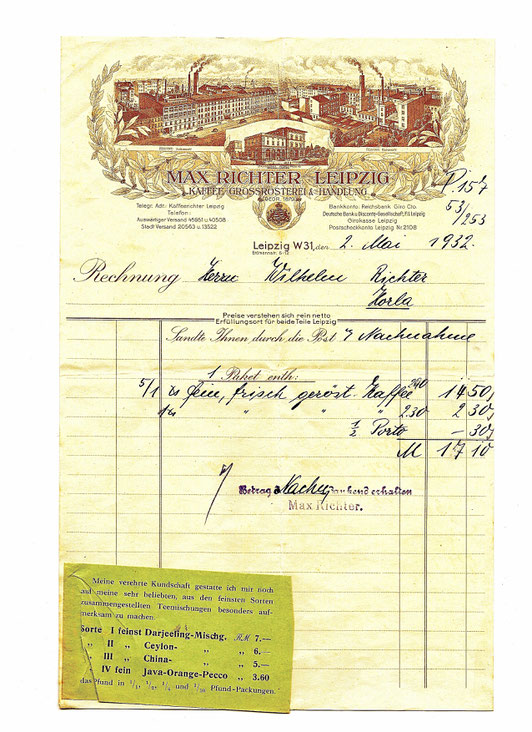 MAX RICHTER LEIPZIG
KAFFEE-GROSSRÖSTEREI & HANDLUNG
GEGR. 1879
P. 157
53/253
Telegr. Adr.: Kaffeerichter Leipzig
Telefon:
Auswärtiger Versand 45951 u. 40508
Stadt Versand 20563 u. 13522
Bankkonto: Reichsbank Giro Cto.
Deutsche Bank u. Disconto-Gesellschaft, Fil. Leipzig
Girokasse Leipzig
Postscheckkonto Leipzig Nr. 2108
Leipzig W31, den 2. Mai 1932.
Rechnung Herrn Wilhelm Richter
Horla
Preise verstehen sich rein netto
Erfüllungsort für beide Teile Leipzig
Sandte Ihnen durch die Post Nachnahme
1 Paket enth:
5/1 fein, frisch geröst. Kaffee 14 50
" " " 2.30 2 30
1/2 Porto - 30
M 17 10
Betrag Nachn. dankend erhalten
Max Richter.
Meine verehrte Kundschaft gestatte ich mir noch
auf meine sehr beliebten, aus den feinsten Sorten
zusammengestellten Teemischungen besonders auf-
merksam zu machen.
Sorte I feinst Darjeeling-Mischg. RM 7.—
„ II „ Ceylon- „ „ 6.—
„ III „ China- „ „ 5.—
„ IV fein Java-Orange-Pecco „ 3.60
das Pfund in 1/1, 1/2, 1/4 und 1/10 Pfund-Packungen.